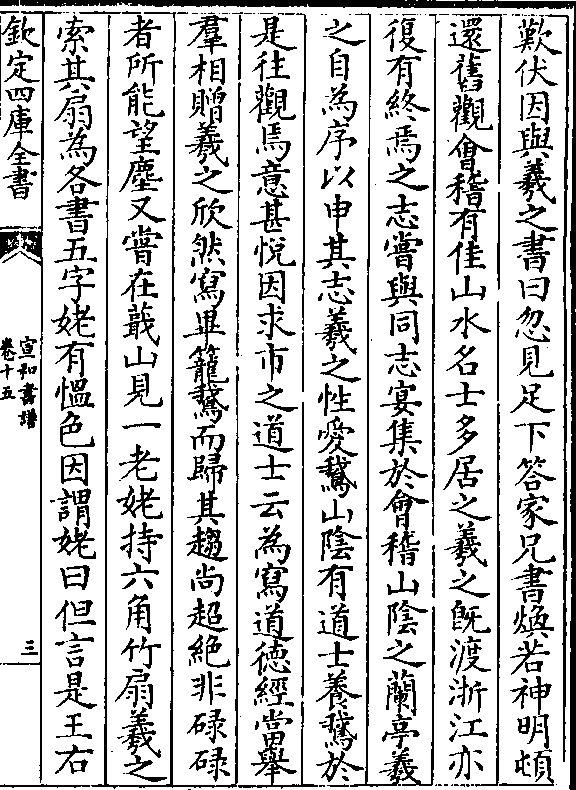 歎伏因與羲之書曰忽見足下答家兄書煥若神明頓
還舊觀會稽有佳山水名士多居之羲之旣渡浙江亦
復有終焉之志嘗與同志宴集於會稽山陰之蘭亭羲
之自為序以申其志羲之性愛鵞山陰有道士養鵞於
是往觀焉意甚悅因求市之道士云為寫道徳經當舉
羣相贈羲之欣然寫畢籠鵞而歸其趨尚超絶非碌碌
者所能望塵又嘗在蕺山見一老姥持六角竹扇羲之
索其扇為各書五字姥有愠色因謂姥曰但言是王右
欽定四庫全書
宣和書譜
卷十五
三